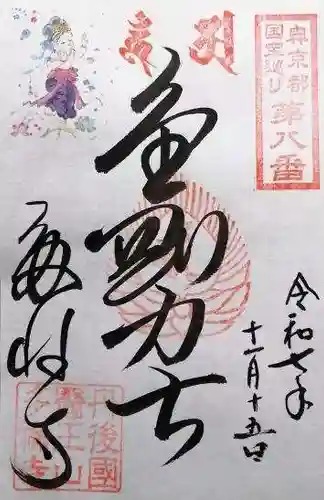 奥京都
国宝巡り
第八番
金剛力士
令和七年
十一月十五日
多祢寺
丹後國
醫王山